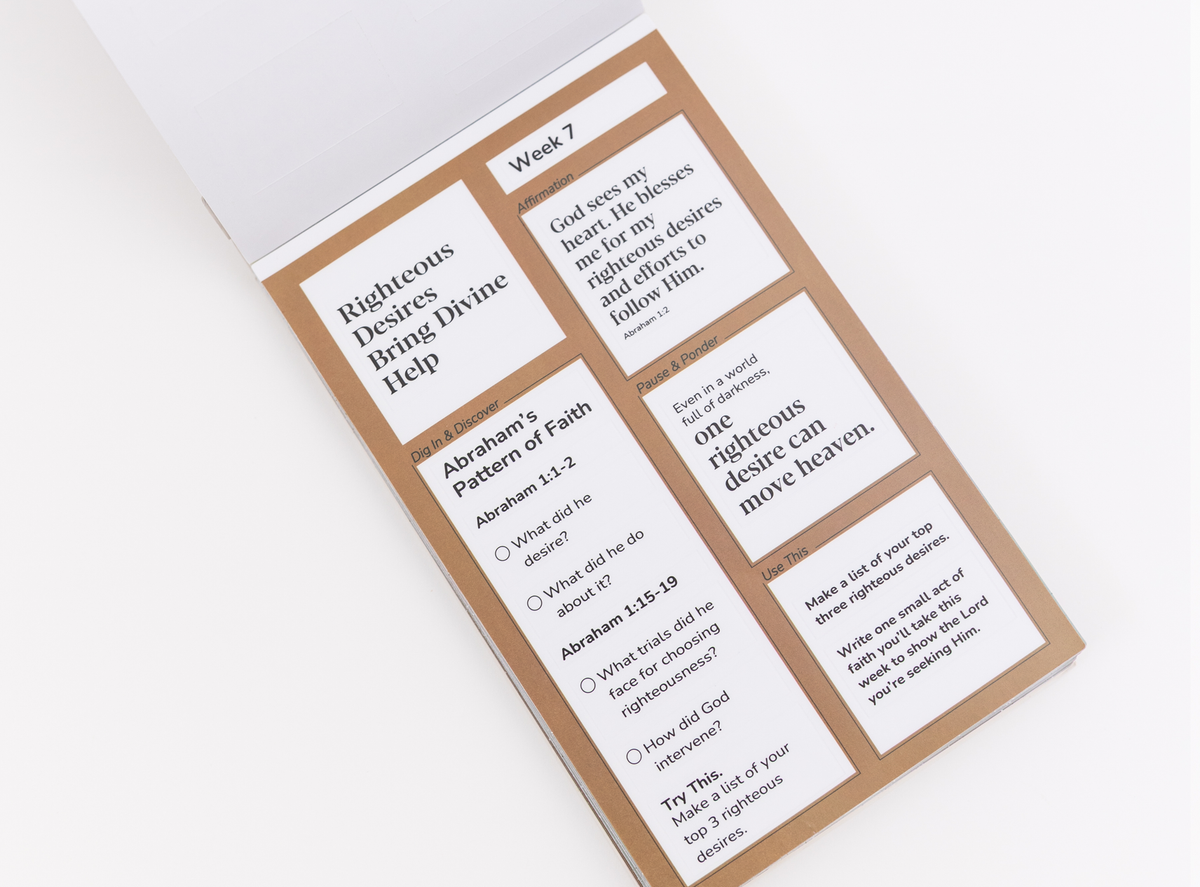 Week 7
Righteous
Desires
Bring Divine
Help
Affirmation
God sees my
heart. He blesses
me for my
righteous desires
and efforts to
follow Him.
Abraham 1:2
Dig In & Discover
Abraham's
Pattern of Faith
Abraham 1:1-2
What did he
desire?
What did he do
about it?
Abraham 1:15-19
What trials did he
face for choosing
righteousness?
How did God
intervene?
Try This.
Make a list of your
top 3 righteous
desires.
Pause & Ponder
Even in a world
full of darkness,
one
righteous
desire can
move heaven.
Use This
Make a list of your top
three righteous desires.
Write one small act of
faith you'll take this
week to show the Lord
you're seeking Him.